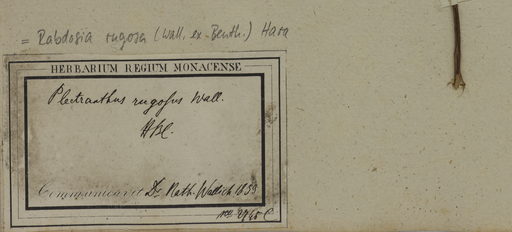 = Rabdosia rugosa (Wall. ex Benth.) Hara
HERBARIUM REGIUM MONACENSE
Plectranthus rugosus Wall.
HBC.
Communicavit Dr. Nath. Wallich 1839